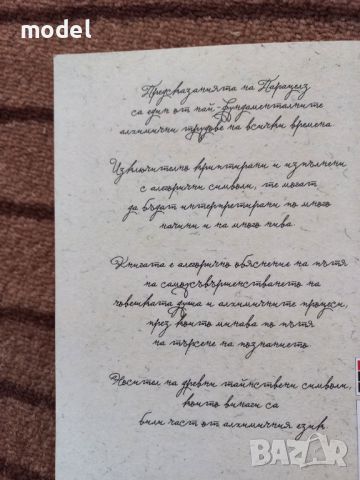 model
Предсказанията на Парацелз
са един от най-фундаменталните
алхимични трудове на всички времена.
Изключително криптирани и изпълнени
с алегорични символи, те могат
да бъдат интерпретирани по много
начини и на много нива.
Книгата е алегорично обяснение на пътя
на самоусъвършенстването на
човешката душа и алхимичните процеси,
през които минава по пътя
на търсене на познанието.
Носител на древни тайнствени символи,
които винаги са
били част от алхимичния език.
BAZAR
bg